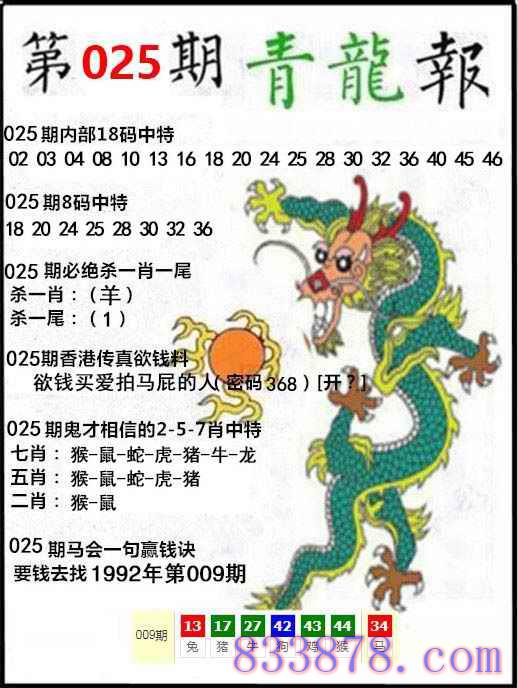 第025期青龍報
025期内部18码中特
02 03 04 08 10 13 16 18 20 24 25 28 30 32 36 40 45 46
025期8码中特
18 20 24 25 28 30 32 36
025 期必绝杀一肖一尾
杀一肖:(羊)
杀一尾:(1)
025期香港传真欲钱料
欲钱买爱拍马屁的人(密码368)[开?]
025期鬼才相信的2-5-7肖中特
七肖: 猴-鼠-蛇-虎-猪-牛-龙
五肖: 猴-鼠-蛇-虎-猪
二肖: 猴-鼠
025 期马会一句赢钱诀
要钱去找1992年第009期
009期 13 17 27 42 43 44 34
兔 猪 牛 狗 鸡 猴 马
833878.com